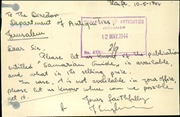 Haifa, 10-5-1944
To The Director
Department of Antiquities,
Jerusalem
12 MAY 1944
Dear Sir.
Please let us know if the publication
entitled "Samaritan Guide" is available,
and what is the selling price.
In case it is not available in your office,
please let us know where can we possibly
get it.
Yours faithfully